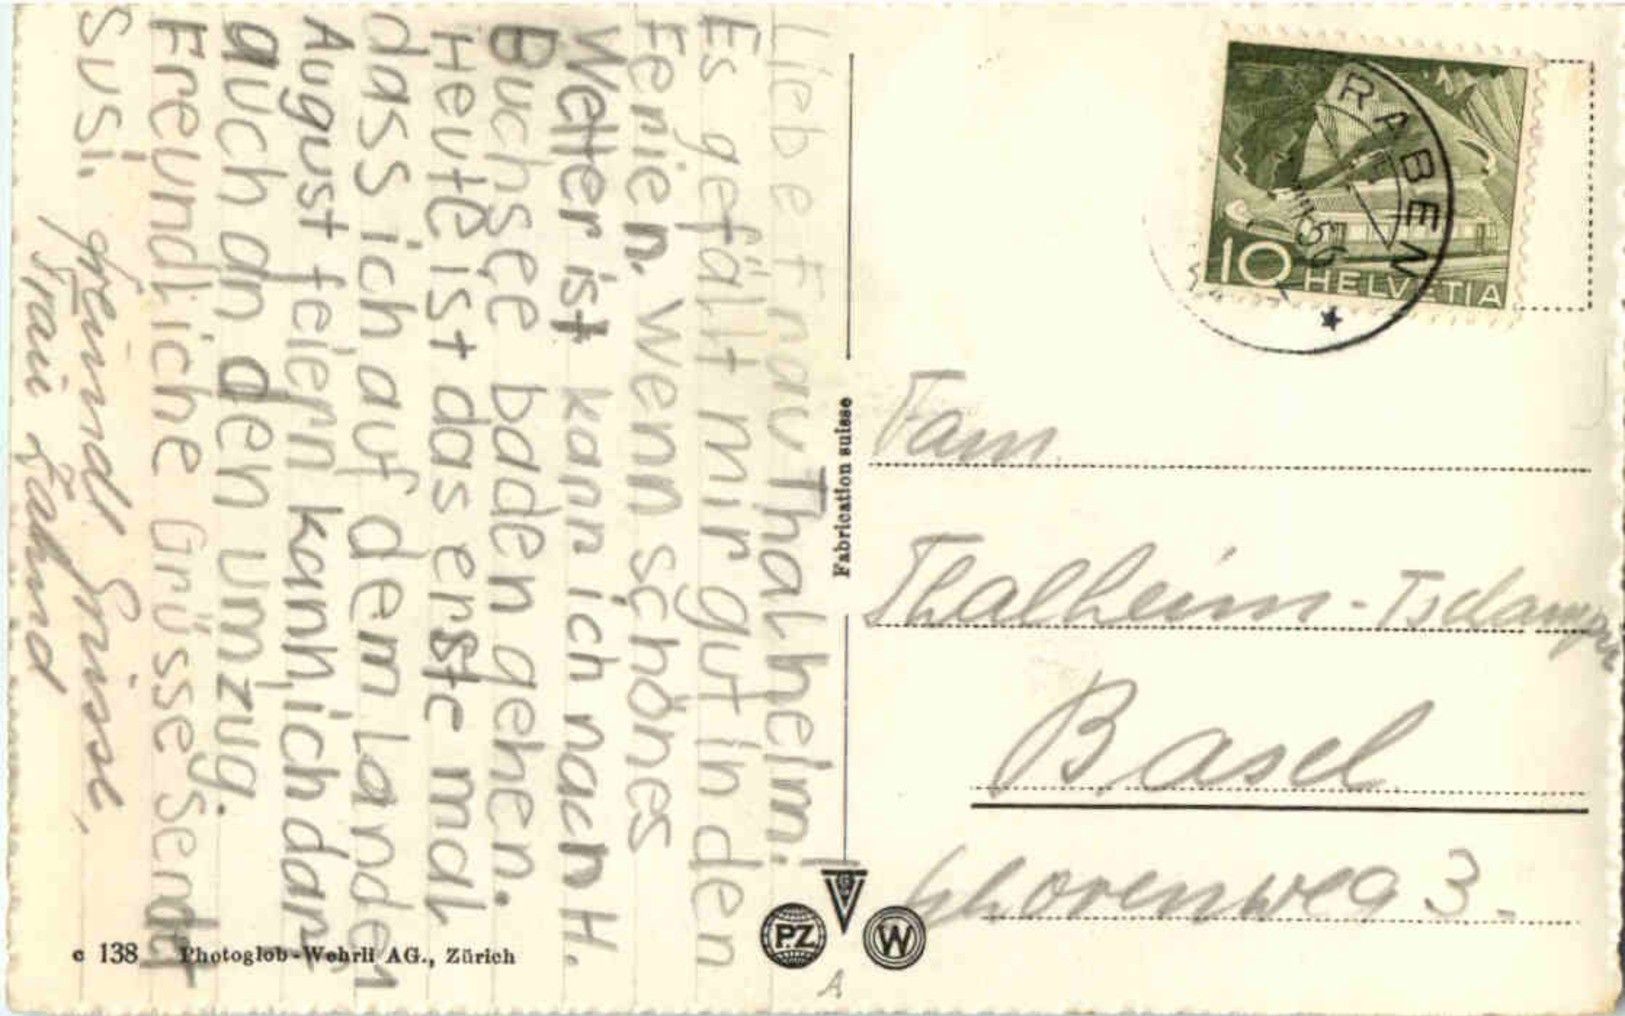 Liebe Frau Thalheim!
Es gefällt mir gut in den
Ferien. Wenn schönes
Wetter ist kann ich nach H.
Buchsee baden gehen.
Heute ist das erste mal
dass ich auf dem Landen
August feiern kann, ich darf
auch an den umzug.
Freundliche Grüsse sendet
Susi.
freundl Grüsse,
Frau
RABEN
VIII 56
10 HELVETIA
Fam.
Thalheim-Tschamper
Basel
Schorenweg 3.
Fabrication suisse
c 138 Photoglob-Wehrli AG., Zürich
PZ
G
V
W
A